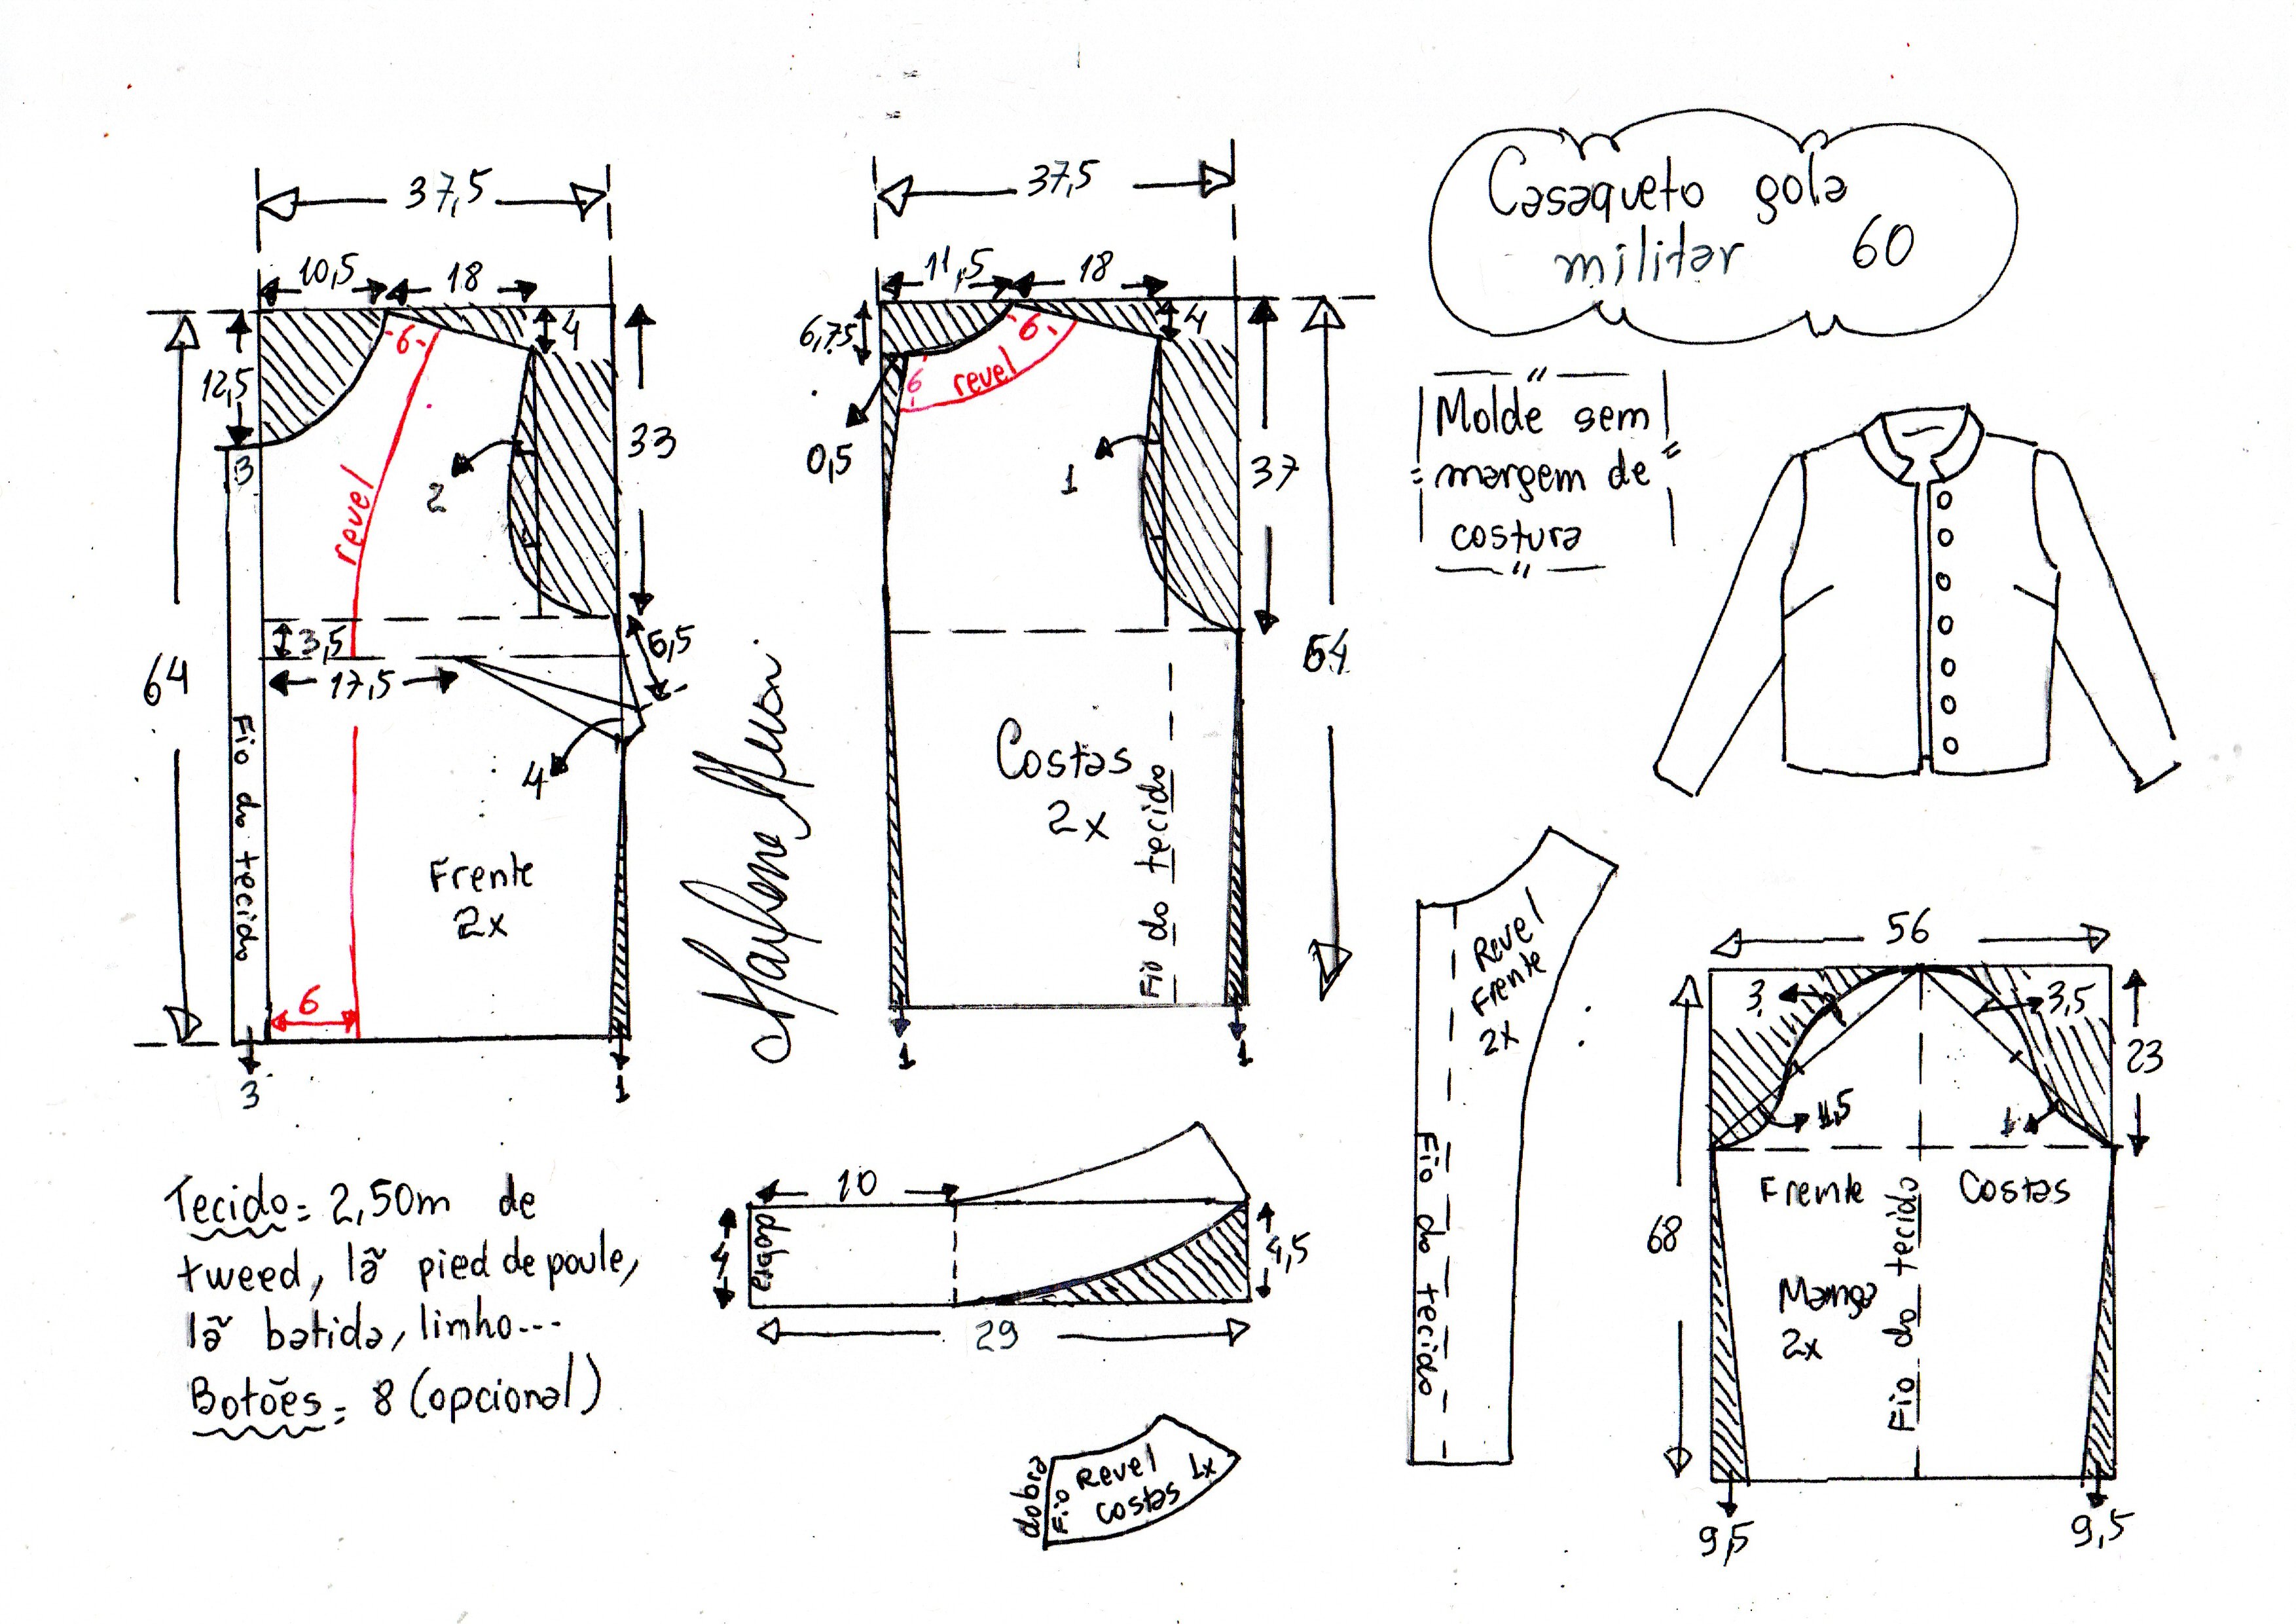 Casaqueto gola
militar 60
Molde sem
margem de
costura
37,5
10,5
18
4
12,5
3
6
revel
2
33
3,5
6,5
17,5
64
4
Fio do tecido
Frente
2x
6
3
1
37,5
11,5
18
6,75
4
6
6
revel
0,5
1
37
64
Costas
2x
Fio do tecido
1
1
Marlene Mukai
Revel
Frente
2x
Fio do tecido
56
3
3,5
23
1,5
1
Frente
Costas
68
Manga
2x
Fio do tecido
9,5
9,5
Tecido = 2,50m de
tweed, lã pied de poule,
lã batida, linho...
Botões = 8 (opcional)
10
4
dobra
4,5
29
dobra
Fio
Revel
costas
1x